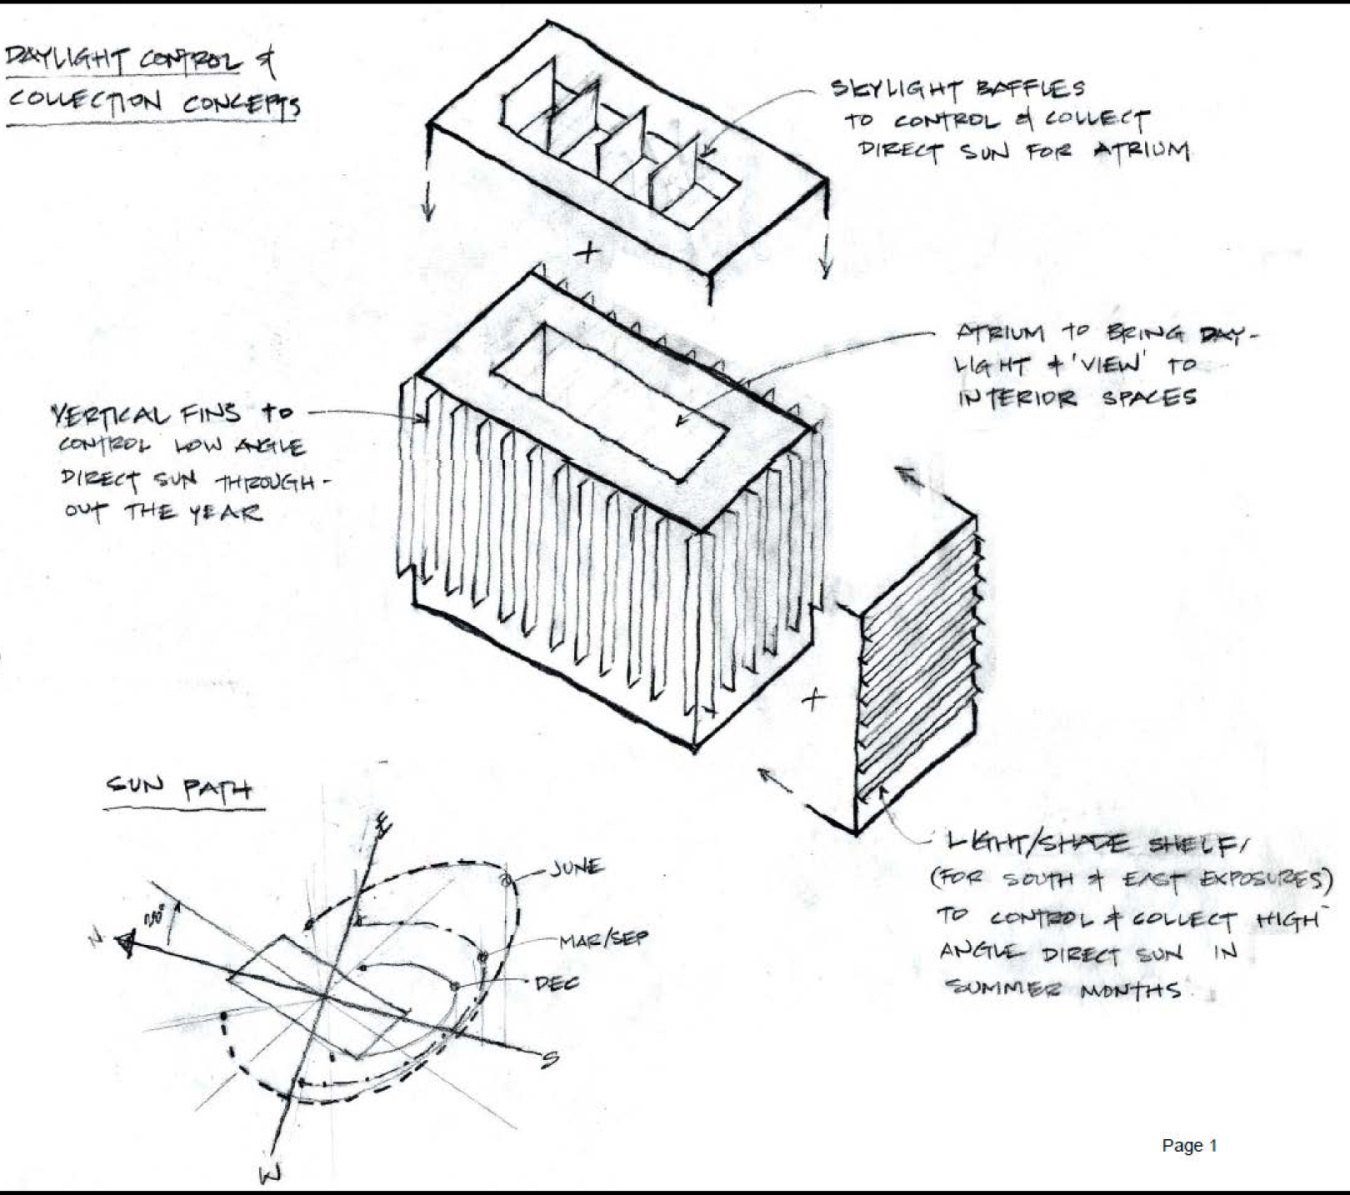 DAYLIGHT CONTROL &
COLLECTION CONCEPTS
SKYLIGHT BAFFLES
TO CONTROL & COLLECT
DIRECT SUN FOR ATRIUM
+
ATRIUM TO BRING DAY-
LIGHT & 'VIEW' TO
INTERIOR SPACES
VERTICAL FINS TO
CONTROL LOW ANGLE
DIRECT SUN THROUGH-
OUT THE YEAR
+
LIGHT/SHADE SHELF,
(FOR SOUTH & EAST EXPOSURES)
TO CONTROL & COLLECT HIGH
ANGLE DIRECT SUN IN
SUMMER MONTHS
SUN PATH
E
JUNE
MAR/SEP
DEC
N
S
W
Page 1